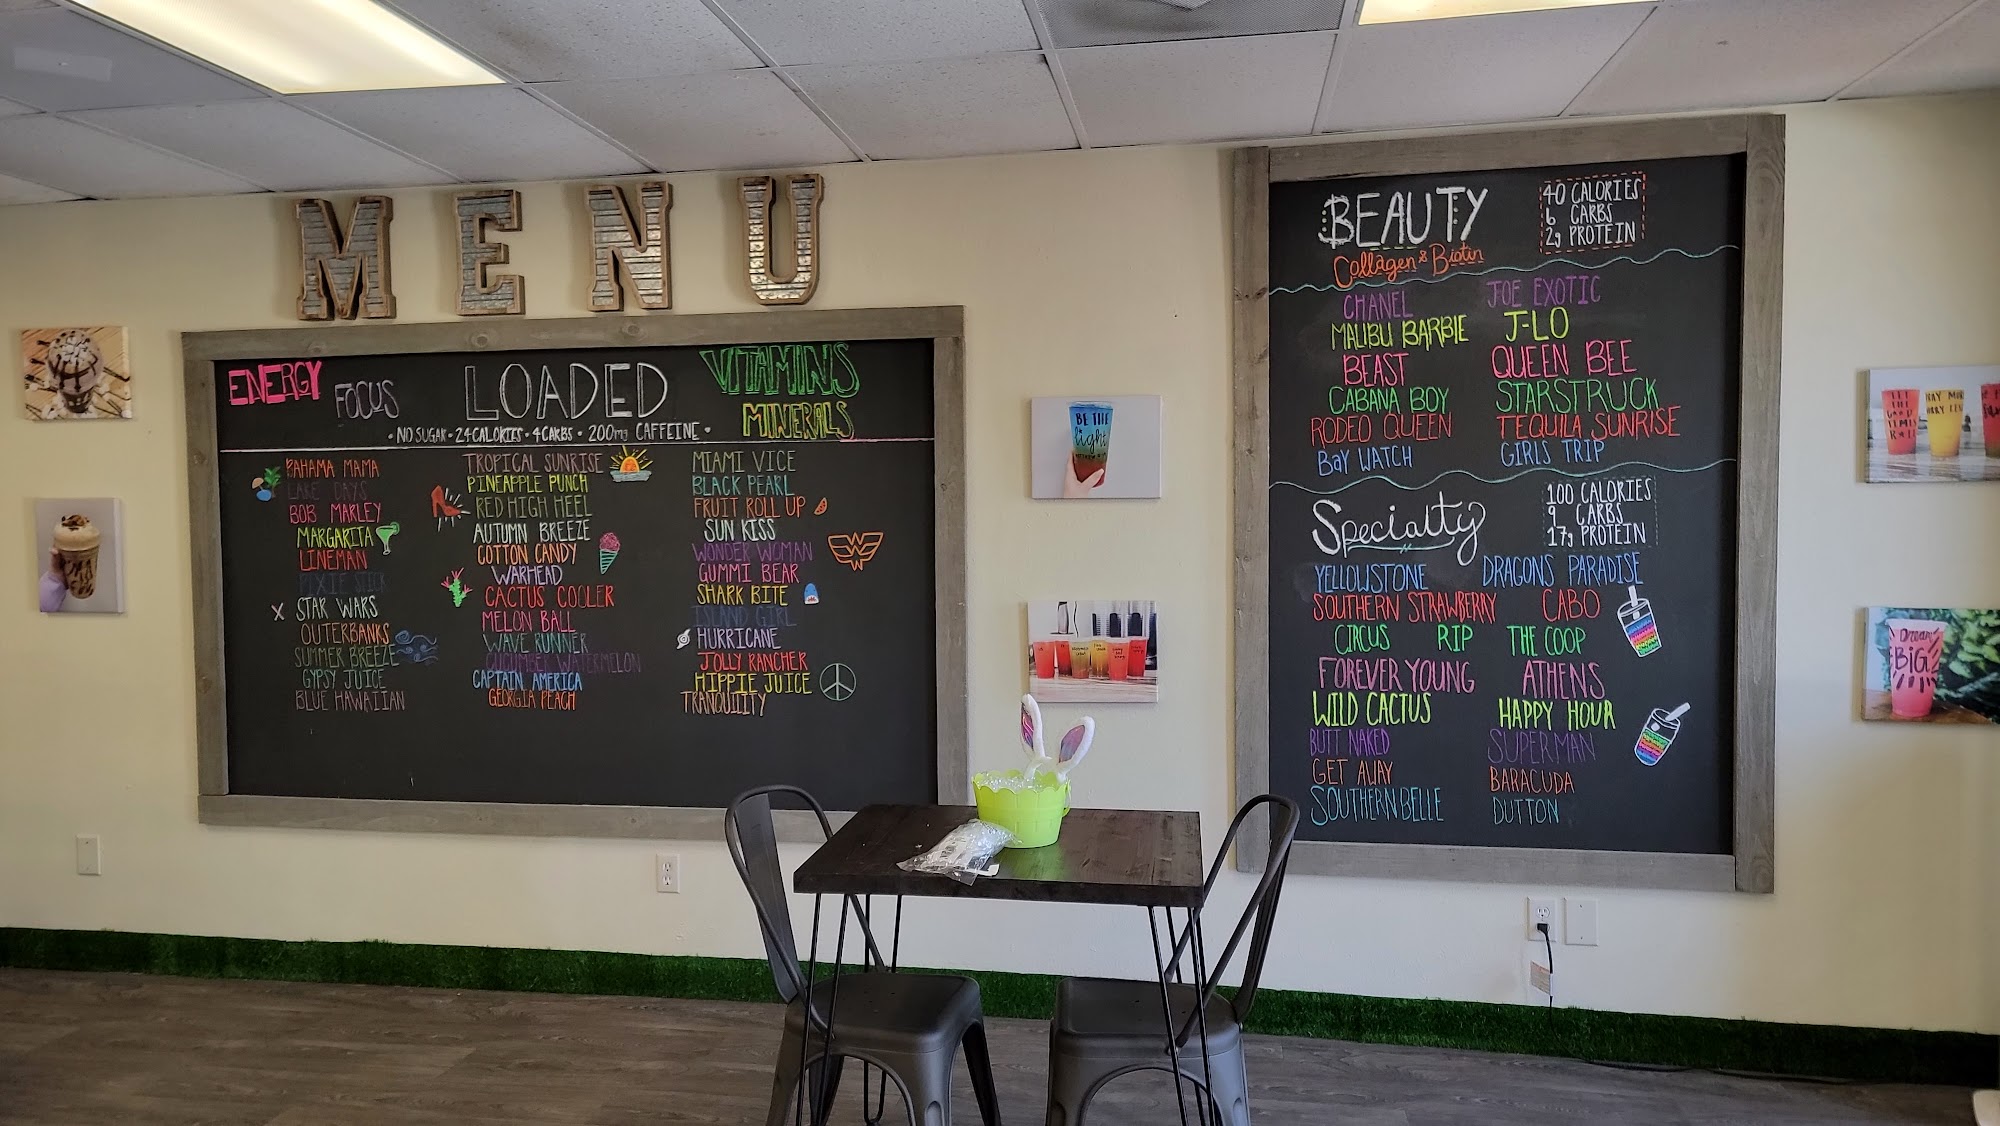 MENU
ENERGY
FOCUS
LOADED
VITAMINS
MINERALS
• NO SUGAR • 24 CALORIES • 4 CARBS • 200mg CAFFEINE •
BAHAMA MAMA
LAKE DAYS
BOB MARLEY
MARGARITA
LINEMAN
PIXIE STICK
STAR WARS
OUTERBANKS
SUMMER BREEZE
GYPSY JUICE
BLUE HAWAIIAN
TROPICAL SUNRISE
PINEAPPLE PUNCH
RED HIGH HEEL
AUTUMN BREEZE
COTTON CANDY
WARHEAD
CACTUS COOLER
MELON BALL
WAVE RUNNER
CUCUMBER WATERMELON
CAPTAIN AMERICA
GEORGIA PEACH
MIAMI VICE
BLACK PEARL
FRUIT ROLL UP
SUN KISS
WONDER WOMAN
GUMMI BEAR
SHARK BITE
ISLAND GIRL
HURRICANE
JOLLY RANCHER
HIPPIE JUICE
TRANQUILITY
BE THE
light
BEAUTY
Collagen & Biotin
40 CALORIES
6 CARBS
2g PROTEIN
CHANEL
MALIBU BARBIE
BEAST
CABANA BOY
RODEO QUEEN
BAY WATCH
JOE EXOTIC
J-LO
QUEEN BEE
STARSTRUCK
TEQUILA SUNRISE
GIRLS TRIP
Specialty
100 CALORIES
9 CARBS
17g PROTEIN
YELLOWSTONE DRAGONS PARADISE
SOUTHERN STRAWBERRY CABO
CIRCUS RIP THE COOP
FOREVER YOUNG ATHENS
WILD CACTUS HAPPY HOUR
BUTT NAKED SUPERMAN
GET AWAY BARACUDA
SOUTHERN BELLE DUTTON
LET
THE
GOOD
TIMES
Dream
BiG